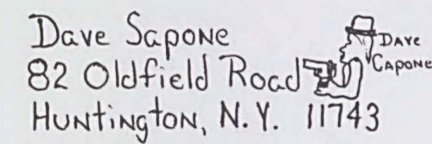 Dave Sapone
82 Oldfield Road
Huntington, N.Y. 11743
Dave
Capone